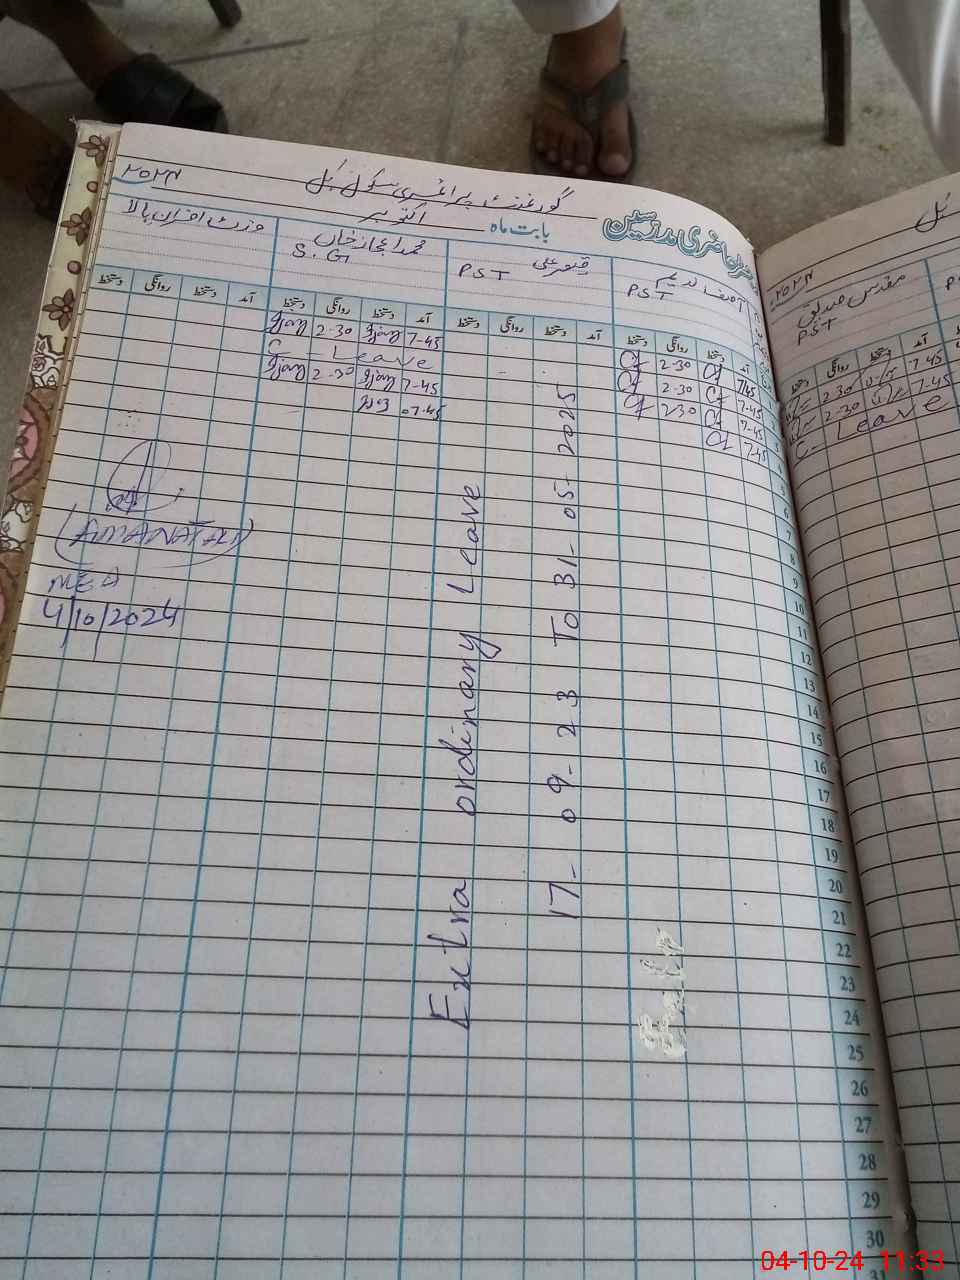 گورنمنٹ پرائمری سکول
۲۰۲۴
رجسٹر حاضری مدرسین
بابت ماہ اکتوبر
PST
قیصر علی
PST
محمد اعجاز خان
S.G
وزٹ افسران بالا
آمد دستخط روانگی دستخط
آمد دستخط روانگی دستخط
آمد دستخط روانگی دستخط
آمد دستخط روانگی دستخط
7-45 2-30
7-45 2-30
7-45 2-30
7-45
7-45 2-30
C- Leave
7-45 2-30
07-45
Extra ordinary Leave
17- 09- 23 To 31- 05- 2025
(AMANAT ALI)
MEA
4/10/2024
5
6
7
8
9
10
11
12
13
14
15
16
17
18
19
20
21
22
23
24
25
26
27
28
29
30
۲۰۲۴
مقدس صدیق
PST
دستخط روانگی دستخط آمد
2-30 7-45
2-30 7-45
C- Leave
04-10-24 11:33